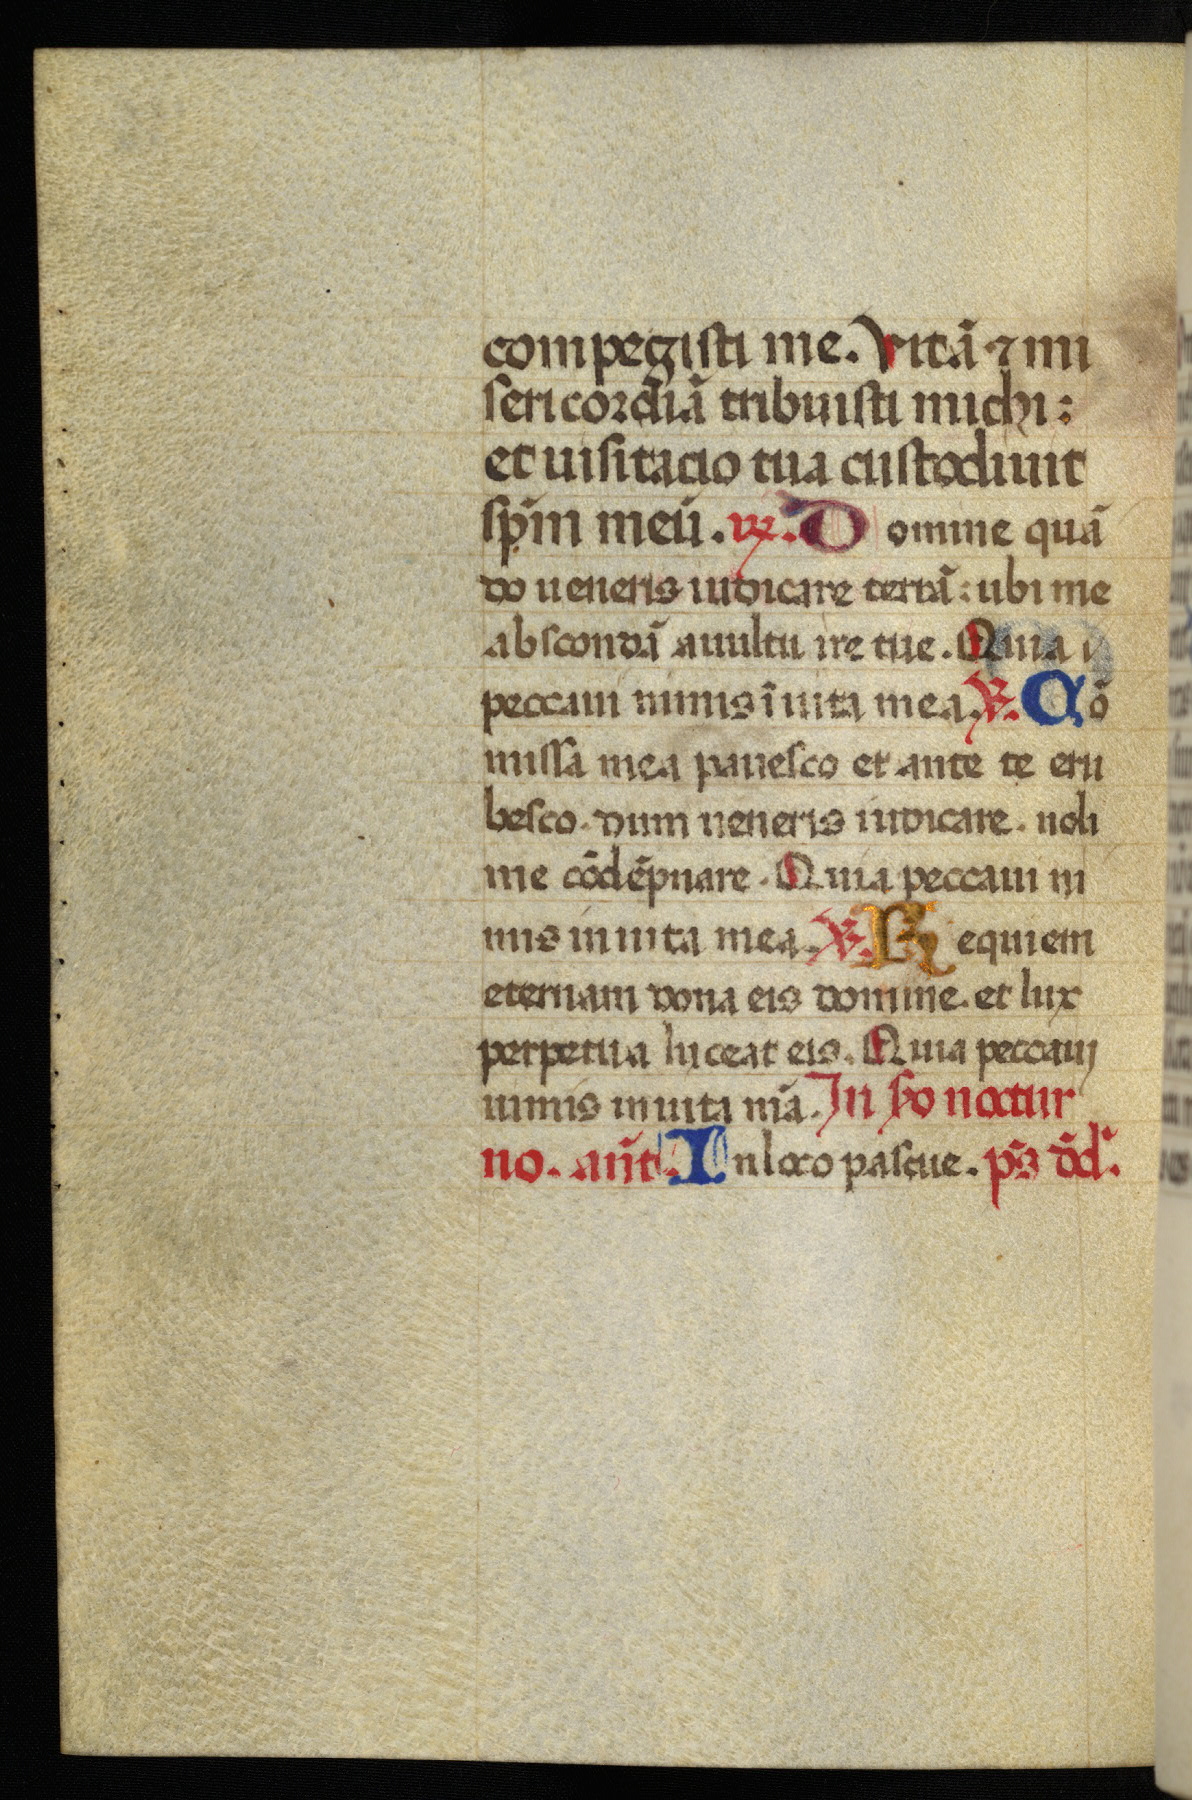 compegisti me. Vitā ⁊ mi
sericordiā tribuisti michi:
et uisitacio tua custodiuit
sp̄m meū. ℟. Domine quā
do ueneris iudicare terrā: ubi me
abscondā auultu ire tue. Quia
peccaui nimis ī uita mea. ℣. Cō
missa mea pauesco et ante te eru
besco. dum ueneris iudicare. noli
me cōdēpnare. Quia peccaui ni
mis in uita mea. ℣. Requiem
eternam dona eis domine. et lux
perpetua luceat eis. Quia peccaui
nimis in uita m̄a. In sc̄do noctur
no. an̄t. In loco pascue. p̄s dd̄.